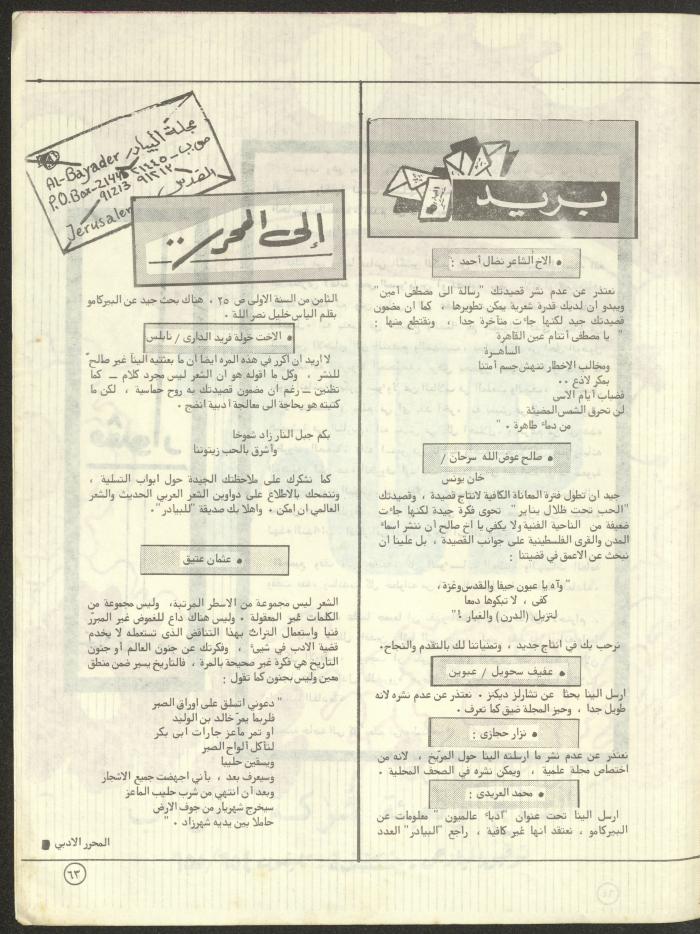 بريد
إلى المحرر ..
مجلة البيادر
AL-Bayader
ص.ب - ٢١٤٤٥
P.O.Box-21445
٩١٢١٣
91213
القدس
Jerusalem
• الاخ الشاعر نضال أحمد :
نعتذر عن عدم نشر قصيدتك "رسالة الى مصطفى أمين"
ويبدو ان لديك قدرة شعرية يمكن تطويرها ، كما ان مضمون
قصيدتك جيد لكنها جاءت متأخرة جدا ، ونقتطع منها :
" يا مصطفى أتنام عين القاهرة
الساهرة
ومخالب الاخطار تنهش جسم أمتنا
بمكر لاذع ٠٠
فضباب أيام الاسى
لن تحرق الشمس المضيئة
من دماء طاهرة ٠ "
• صالح عوض الله سرحان /
خان يونس
جيد ان تطول فترة المعاناة الكافية لانتاج قصيدة ، وقصيدتك
"الحب تحت ظلال يناير" تحوى فكرة جيدة لكنها جاءت
ضعيفة من الناحية الفنية ولا يكفي يا اخ صالح ان ننشر اسماء
المدن والقرى الفلسطينية على جوانب القصيدة ، بل علينا ان
نبحث عن الاعمق في قضيتنا :
"وآه يا عيون حيفا والقدس وغزة ،
كفى ، لا تبكوها دمعا
لنزيل (الدرن) والغبار !"
نرحب بك في انتاج جديد ، وتمنياتنا لك بالتقدم والنجاح٠
• عفيف سحويل / عبوين
ارسل الينا بحثا عن تشارلز ديكنز ٠ نعتذر عن عدم نشره لانه
طويل جدا ، وحيز المجلة ضيق كما تعرف ٠
• نزار حجازى :
نعتذر عن عدم نشر ما ارسلته الينا حول المريخ ، لانه من
اختصاص مجلة علمية ، ويمكن نشره في الصحف المحلية ٠
• محمد العريدى :
ارسل الينا تحت عنوان "أدباء عالميون" معلومات عن
البيركامو ، نعتقد انها غير كافية ، راجع "البيادر" العدد
الثامن من السنة الاولى ص ٢٥ ، هناك بحث جيد عن البيركامو
بقلم الياس خليل نصر اللة ٠
• الاخت خولة فريد الدارى / نابلس
لا اريد ان أكرر في هذه المره ايضا ان ما بعثتيه الينا غير صالح
للنشر ، وكل ما اقوله هو ان الشعر ليس مجرد كلام ــ كما
تظنين ــ رغم أن مضمون قصيدتك به روح حماسية ، لكن ما
كتبته هو بحاجة الى معالجة أدبية انضج ٠
بكم جبل النار زاد شموخا
وأشرق بالحب زيتوننا
كما نشكرك على ملاحظتك الجيدة حول ابواب التسلية ،
وننصحك بالاطلاع على دواوين الشعر العربي الحديث والشعر
العالمي ان امكن ٠ واهلا بك صديقة "للبيادر"٠
• عثمان عتيق
الشعر ليس مجموعة من الاسطر المرتبة، وليس مجموعة من
الكلمات غير المعقولة ٠ وليس هناك داع للغموض غير المبرر
فنيا واستعمال التراث بهذا التناقض الذي تستعمله لا يخدم
قضية الادب في شيء ، وفكرتك عن جنون العالم أو جنون
التأريخ هي فكرة غير صحيحة بالمرة ، فالتاريخ يسير ضمن منطق
معين وليس بجنون كما تقول :
" دعوني اتسلق على أوراق الصبر
فلربما يمر خالد بن الوليد
او تمر ماعز جارات ابي بكر
لتأكل ألواح الصبر
ويسقين حليبا
وسيعرف بعد ، بأني اجهضت جميع الاشجار
وبعد أن انتهي من شرب حليب الماعز
سيخرج شهريار من جوف الارض
حاملا بين يديه شهرزاد ٠ "
المحرر الادبي
٦٣